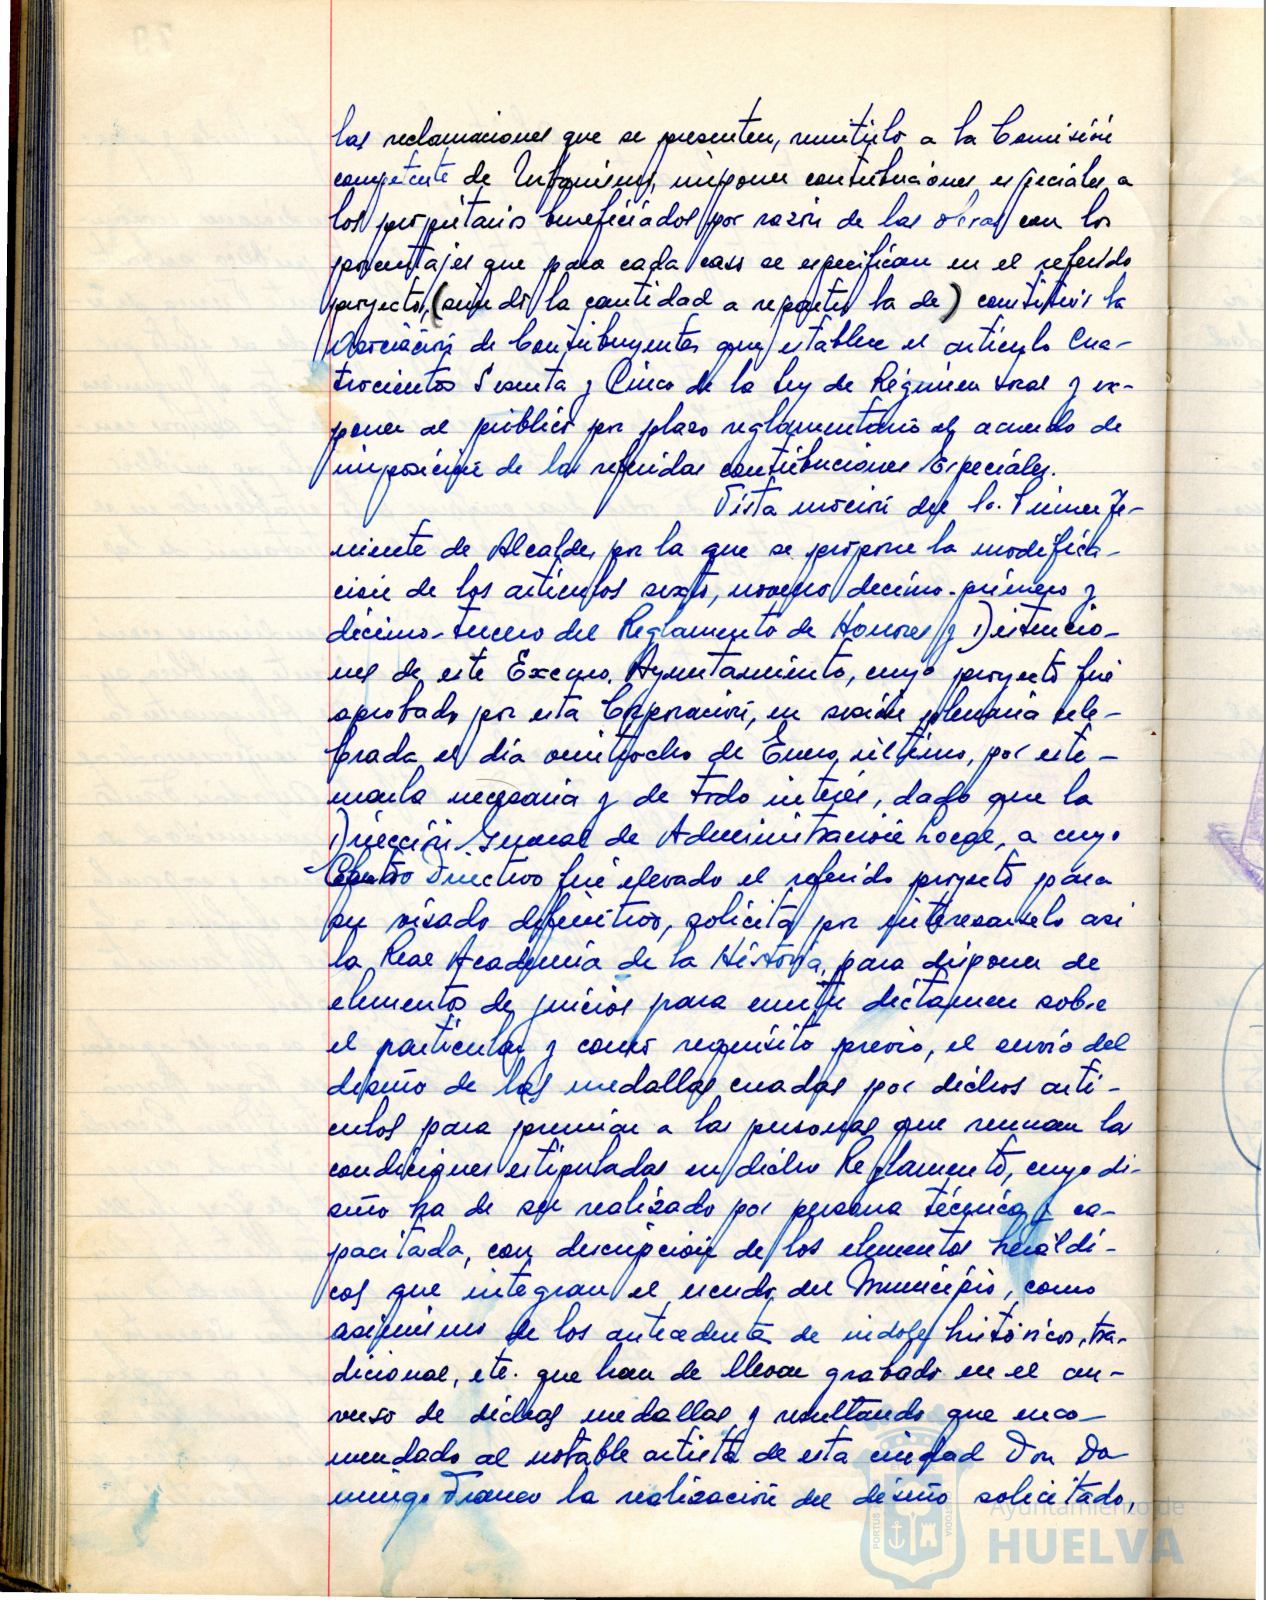 las reclamaciones que se presenten, remitirlo a la Comisión
competente de Urbanismo, imponer contribuciones especiales a
los propietarios beneficiados por razón de las obras con los
porcentajes que para cada caso se especifican en el referido
proyecto, (siendo la cantidad a repartir la de) constituir la
Asociación de Contribuyentes que establece el artículo Cua-
trocientos Sesenta y Cinco de la Ley de Régimen Local y ex-
poner al público por plazo reglamentario el acuerdo de
imposición de las referidas contribuciones Especiales.
Vista moción del Sr. Primer Te-
niente de Alcalde, por la que se propone la modifica-
ción de los artículos sexto, noveno décimo-primero y
décimo-tercero del Reglamento de Honores y Distincio-
nes de este Excmo. Ayuntamiento, cuyo proyecto fué
aprobado por esta Corporación, en sesión plenaria cele-
brada el día veintiocho de Enero último, por esti-
marla necesaria y de todo interés, dado que la
Dirección General de Administración Local, a cuyo
Centro Directivo fué elevado el referido proyecto para
su visado definitivo, solicita por interesarselo asi
la Real Academia de la História, para disponer de
elementos de juicios para emitir dictamen sobre
el particular y como requisito previo, el envio del
diseño de las medallas creadas por dichos artí-
culos para premiar a las personas que reunan las
condiciones estipuladas en dicho Reglamento, cuyo di-
seño ha de ser realizado por persona técnica y ca-
pacitada, con descripción de los elementos heráldi-
cos que integran el escudo del Município, como
asimismo de los antecedentes de indole históricos, tra-
dicional, etc. que han de llevar grabado en el an-
verso de dichas medallas y resultando que enco-
mendado al notable artista de esta ciudad Don Do
mingo Franco la realización del diseño solicitado,
Ayuntamiento de
HUELVA